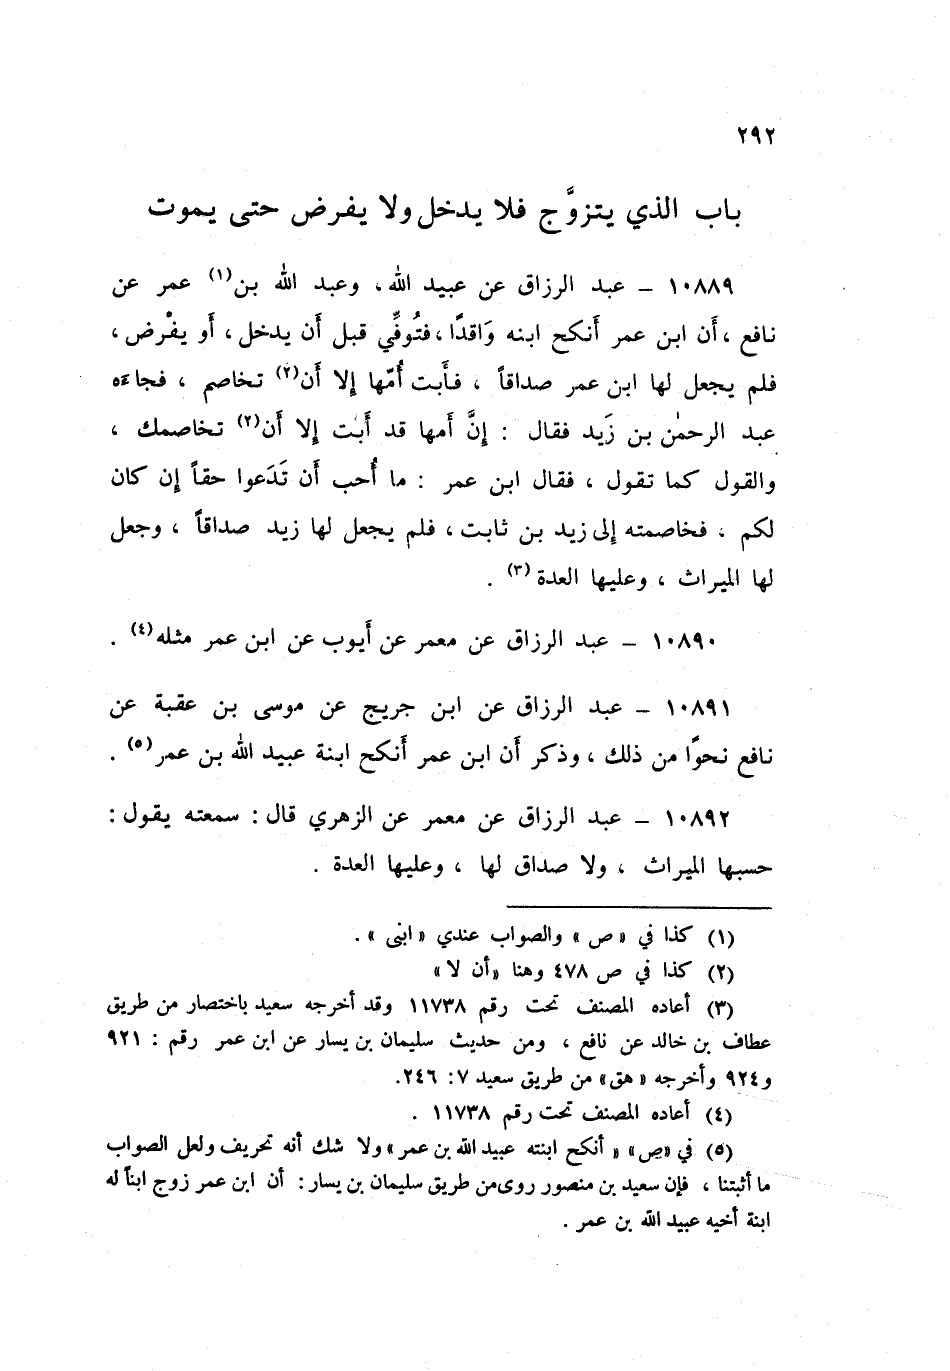 ٢٩٢
باب الذي يتزوَّج فلا يدخل ولا يفرض حتى يموت
١٠٨٨٩ – عبد الرزاق عن عبيد الله، وعبد الله بن(١) عمر عن
نافع ، أن ابن عمر أَنكح ابنه وَاقدًا ، فتُوفِّي قبل أَن يدخل ، أَو يفْرض ،
فلم يجعل لها ابن عمر صداقاً ، فأَبت أُمّها إلا أَن(٢) تخاصم ، فجاءَه
عبد الرحمٰن بن زَيد فقال : إنَّ أمها قد أَبت إلا أَن(٢) تخاصمك ،
والقول كما تقول ، فقال ابن عمر : ما أُحب أَن تَدَعوا حقاً إن كان
لكم ، فخاصمته إلى زيد بن ثابت ، فلم يجعل لها زيد صداقاً ، وجعل
لها الميراث ، وعليها العدة(٣) .
١٠٨٩٠ – عبد الرزاق عن معمر عن أَيوب عن ابن عمر مثله(٤) .
١٠٨٩١ – عبد الرزاق عن ابن جريج عن موسى بن عقبة عن
نافع نحوًا من ذلك ، وذكر أَن ابن عمر أَنكح ابنة عبيد الله بن عمر(٥) .
١٠٨٩٢ – عبد الرزاق عن معمر عن الزهري قال : سمعته يقول :
حسبها الميراث ، ولا صداق لها ، وعليها العدة .
(١) كذا في « ص » والصواب عندي « ابنى » .
(٢) كذا في ص ٤٧٨ وهنا « أن لا »
(٣) أعاده المصنف تحت رقم ١١٧٣٨ وقد أخرجه سعيد باختصار من طريق
عطاف بن خالد عن نافع ، ومن حديث سليمان بن يسار عن ابن عمر رقم : ٩٢١
و٩٢٤ وأخرجه « هق » من طريق سعيد ٧: ٢٤٦.
(٤) أعاده المصنف تحت رقم ١١٧٣٨ .
(٥) في «ص» « أنكح ابنته عبيد الله بن عمر » ولا شك أنه تحريف ولعل الصواب
ما أثبتنا ، فإن سعيد بن منصور روى من طريق سليمان بن يسار : أن ابن عمر زوج ابناً له
ابنة أخيه عبيد الله بن عمر .